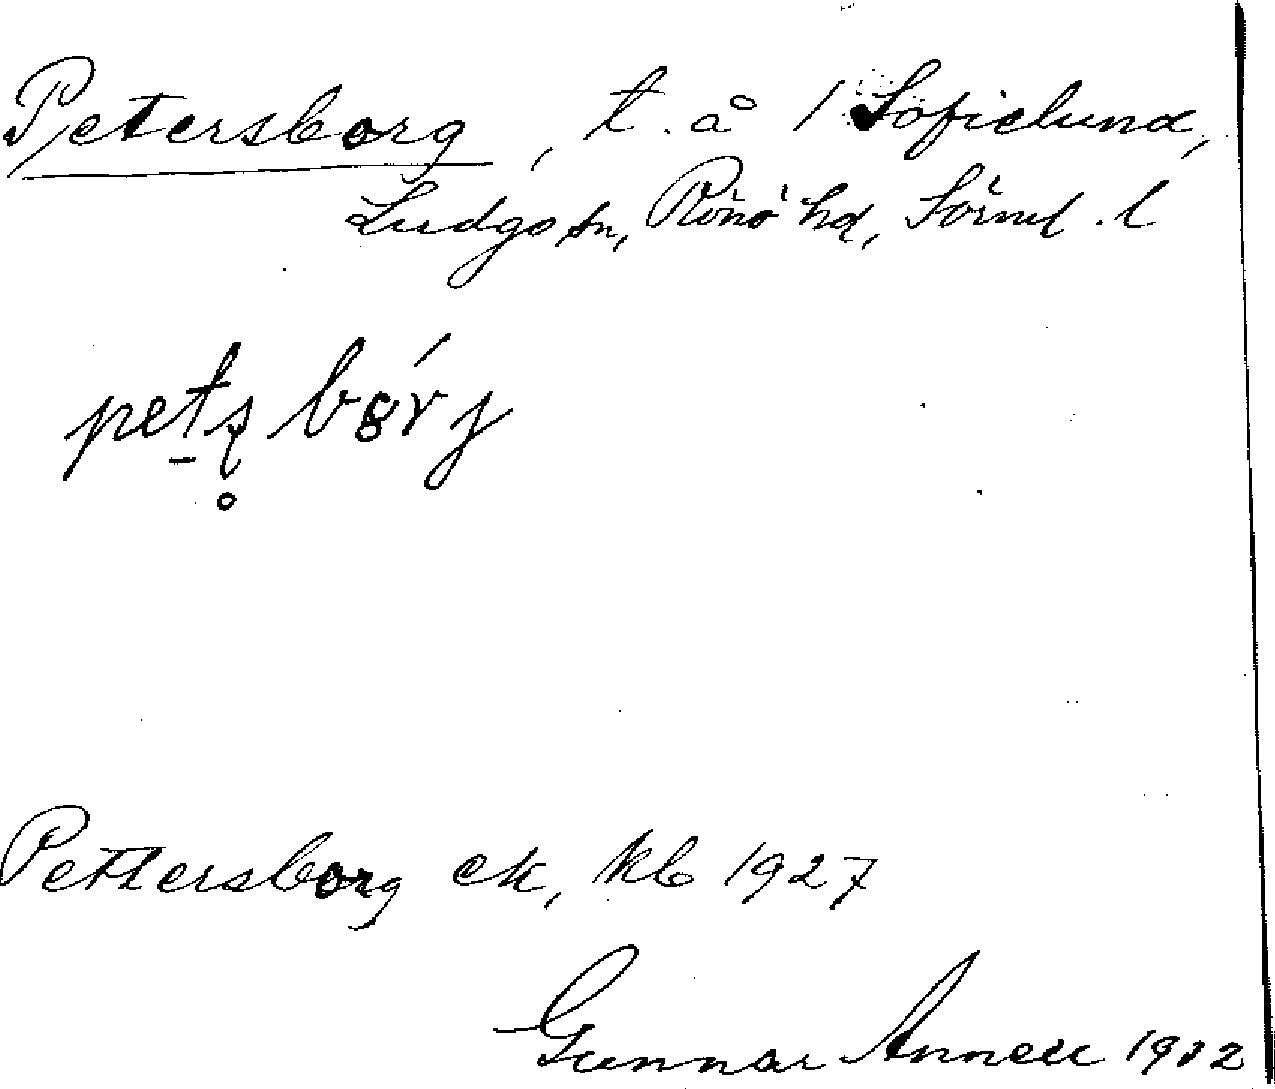 Petersborg, t. å 1 Sofielund,
Ludgo sn, Rönö hd, Sörml. l
Pettersborg ek, kb 1927
Gunnar Annell 1932